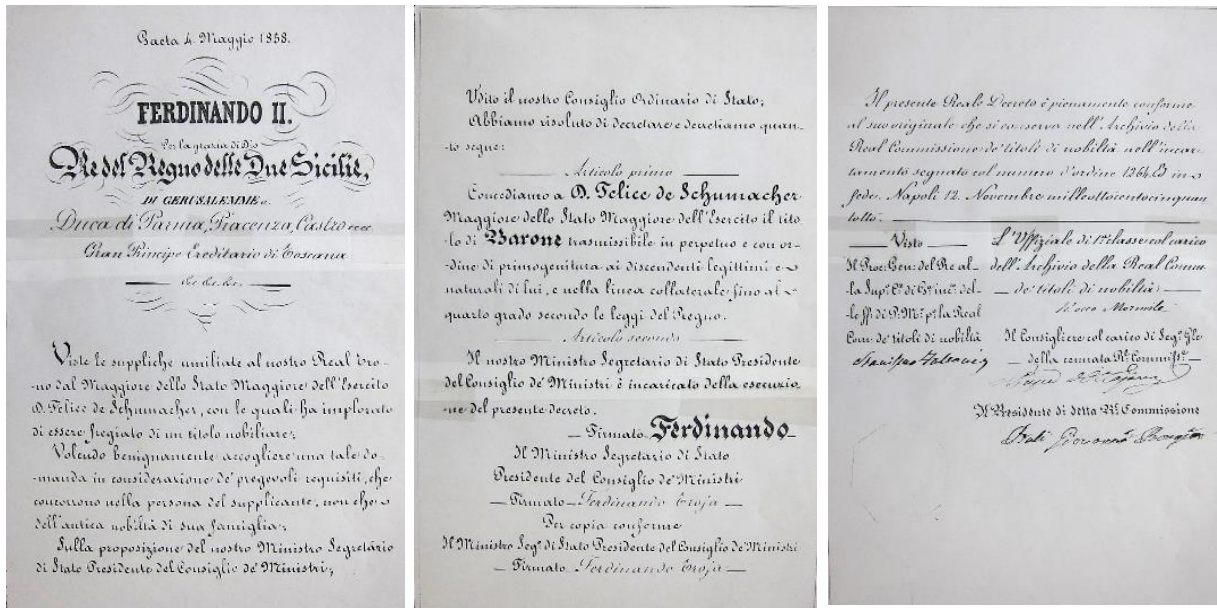 Gaeta 4. Maggio 1858.
FERDINANDO II.
Per la grazia di Dio
Re del Regno delle Due Sicilie,
DI GERUSALEMME ec.
Duca di Parma, Piacenza, Castro ecc ec
Gran Principe Ereditario di Toscana
&c. &c. &c.
Viste le suppliche umiliate al nostro Real Tro-
-no dal Maggiore dello Stato Maggiore dell'Esercito
D. Felice de Schumacher, con le quali ha implorato
di essere fregiato di un titolo nobiliare;
Volendo benignamente accogliere una tale do-
-manda in considerazione de' pregevoli requisiti, che
concorrono nella persona del supplicante, non che
dell'antica nobiltà di sua famiglia;
Sulla proposizione del nostro Ministro Segretario
di Stato Presidente del Consiglio de' Ministri;
Udito il nostro Consiglio Ordinario di Stato;
Abbiamo risoluto di decretare e decretiamo quan-
to segue:
Articolo primo
Concediamo a D. Felice de Schumacher
Maggiore dello Stato Maggiore dell'Esercito il tito-
lo di Barone trasmissibile in perpetuo e con or-
dine di primogenitura ai discendenti legittimi e
naturali di lui, e nella linea collaterale fino al
quarto grado secondo le leggi del Regno.
Articolo secondo
Il nostro Ministro Segretario di Stato Presidente
del Consiglio de' Ministri è incaricato della esecuzio-
ne del presente decreto.
Firmato Ferdinando
Il Ministro Segretario di Stato
Presidente del Consiglio de' Ministri
Firmato Ferdinando Troja
Per copia conforme
Il Ministro Seg.º di Stato Presidente del Consiglio de' Ministri
Firmato Ferdinando Troja
Il presente Reale Decreto è pienamente conforme
al suo originale che si conserva nell'Archivio della
Real Commissione de' titoli di nobiltà nell'incar-
tamento segnato col numero d'ordine 1264. Ed in
fede. Napoli 12. Novembre milleottocentocinquan
totto.
Visto
Il Proc: Gen: del Re al-
-la Sup.ª C.ª di G.ª inc.º del-
-le ff. di P. M.º p.r la Real
Com: de' titoli di nobiltà
L'Uffiziale di 1.ª classe col carico
dell'Archivio della Real Comm.
de' titoli di nobiltà:
Mormile
Il Consigliere col carico di Seg.º Gle
della cennata R.l Commiss.e
Il Presidente di detta R.l Commissione
Giovanni